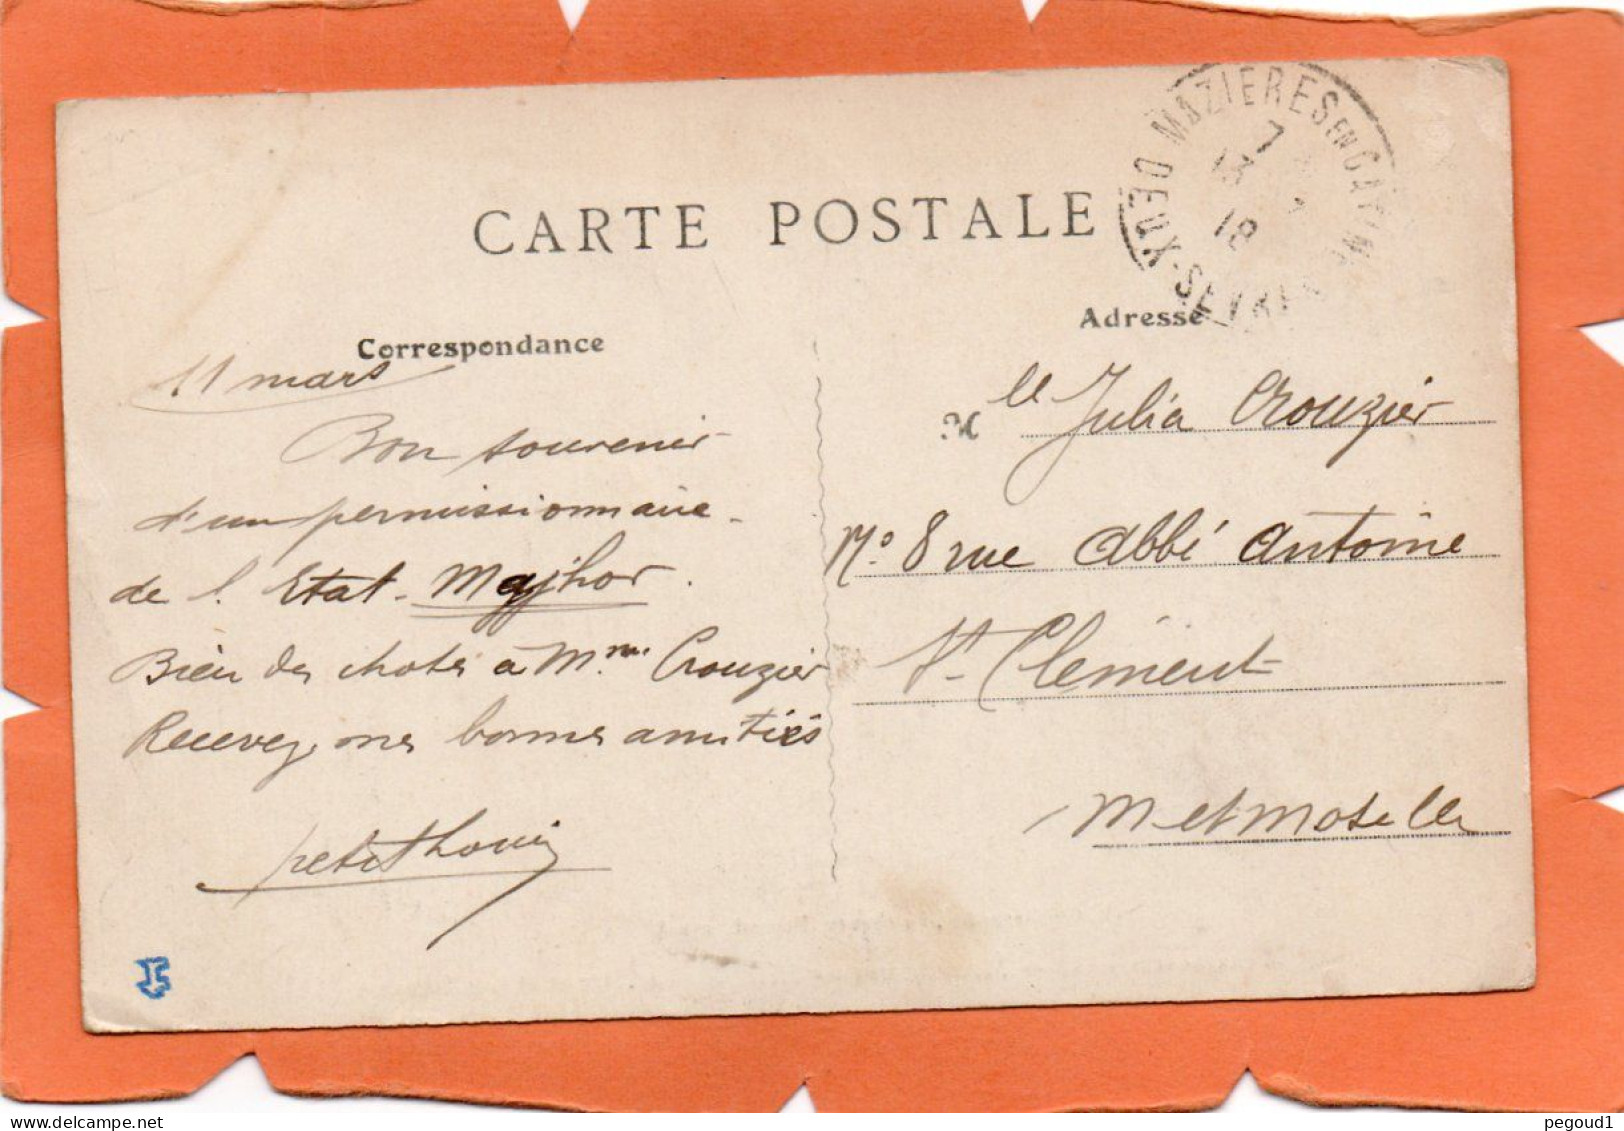 CARTE POSTALE
MAZIERES EN GATINE
7
13
18
DEUX-SEVRES
Correspondance
Adresse
11 mars
Bon souvenir
d'un permissionnaire
de l'Etat-Majhor.
Bien des choses à Mme Crouzier
Recevez mes bonnes amitiés
petitthouin
Mlle Julia Crouzier
No 8 rue abbé antoine
St Clément
Met Moselle
pegoud1